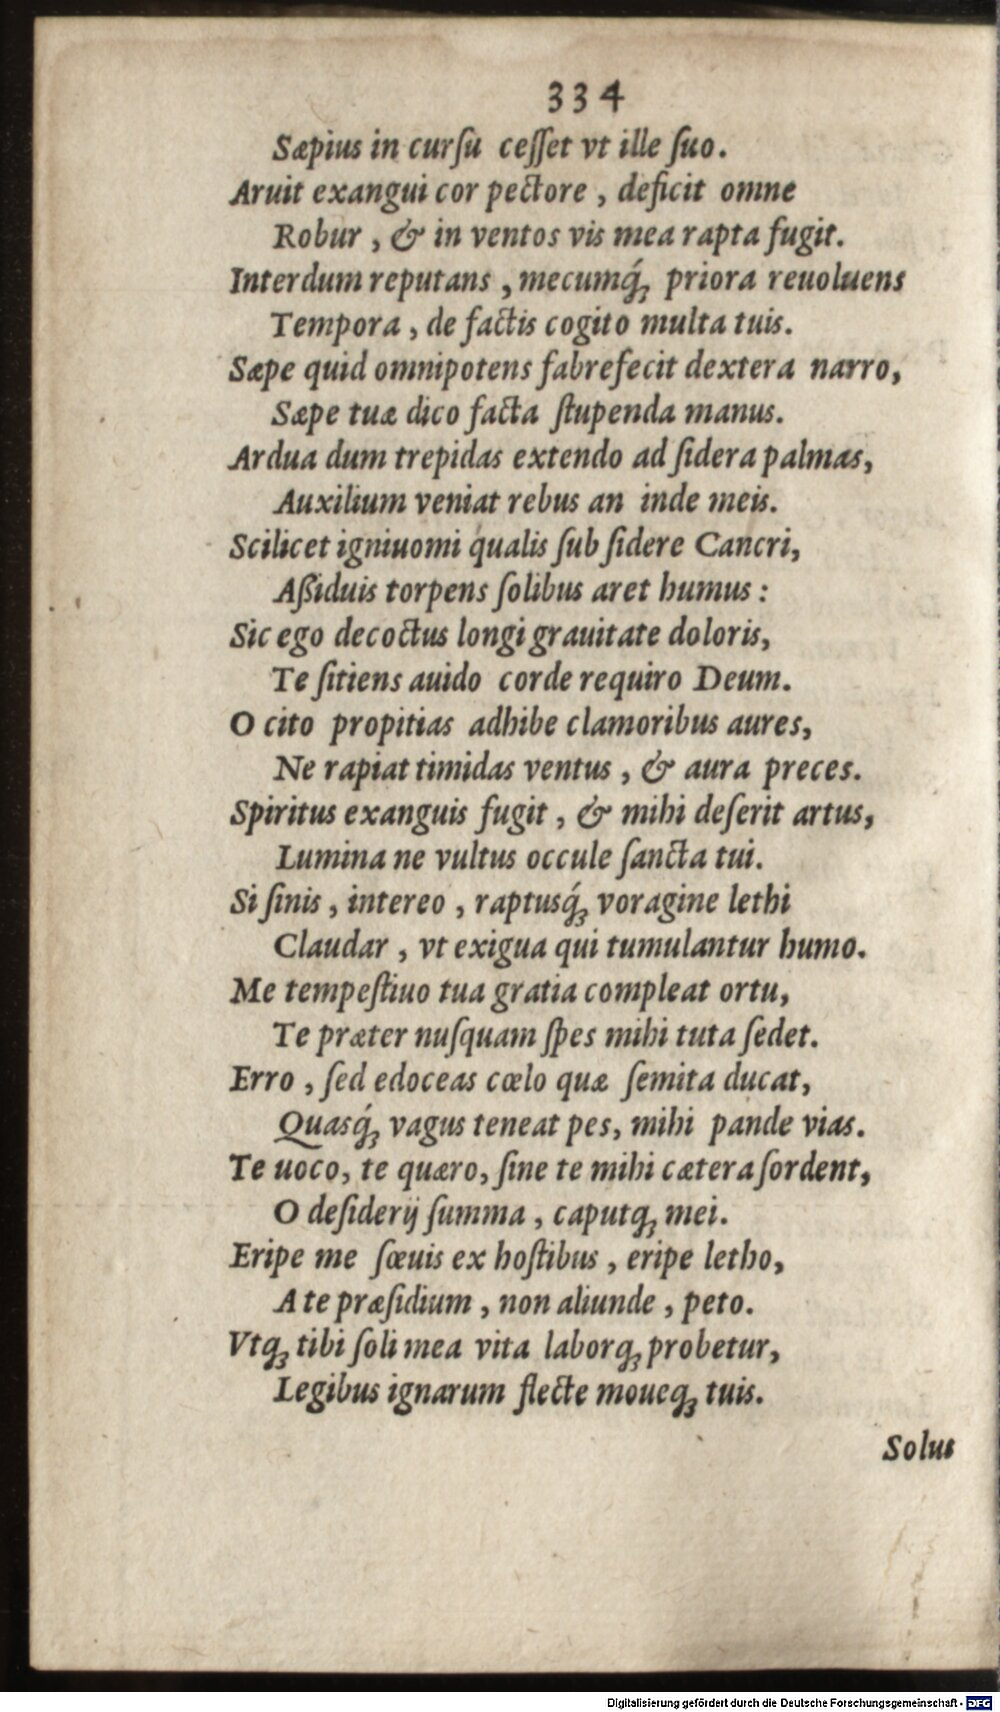 334
Sæpius in curſu ceſſet vt ille ſuo.
Aruit exangui cor pectore , deficit omne
Robur , & in ventos vis mea rapta fugit.
Interdum reputans , mecumq́ꝫ priora reuoluens
Tempora , de factis cogito multa tuis.
Sæpe quid omnipotens fabrefecit dextera narro,
Sæpe tuæ dico facta ſtupenda manus.
Ardua dum trepidas extendo ad ſidera palmas,
Auxilium veniat rebus an inde meis.
Scilicet igniuomi qualis ſub ſidere Cancri,
Aßiduis torpens ſolibus aret humus :
Sic ego decoctus longi grauitate doloris,
Te ſitiens auido corde requiro Deum.
O cito propitias adhibe clamoribus aures,
Ne rapiat timidas ventus , & aura preces.
Spiritus exanguis fugit , & mihi deſerit artus,
Lumina ne vultus occule ſancta tui.
Si ſinis , intereo , raptusq́ꝫ voragine lethi
Claudar , vt exigua qui tumulantur humo.
Me tempeſtiuo tua gratia compleat ortu,
Te præter nuſquam ſpes mihi tuta ſedet.
Erro , ſed edoceas cœlo quæ ſemita ducat,
Quasq́ꝫ vagus teneat pes, mihi pande vias.
Te uoco, te quæro, ſine te mihi cætera ſordent,
O deſiderij ſumma , caputqꝫ mei.
Eripe me ſœuis ex hoſtibus , eripe letho,
A te præſidium , non aliunde , peto.
Vtqꝫ tibi ſoli mea vita laborqꝫ probetur,
Legibus ignarum flecte moueqꝫ tuis.
Solus
Digitalisierung gefördert durch die Deutsche Forschungsgemeinschaft - DFG